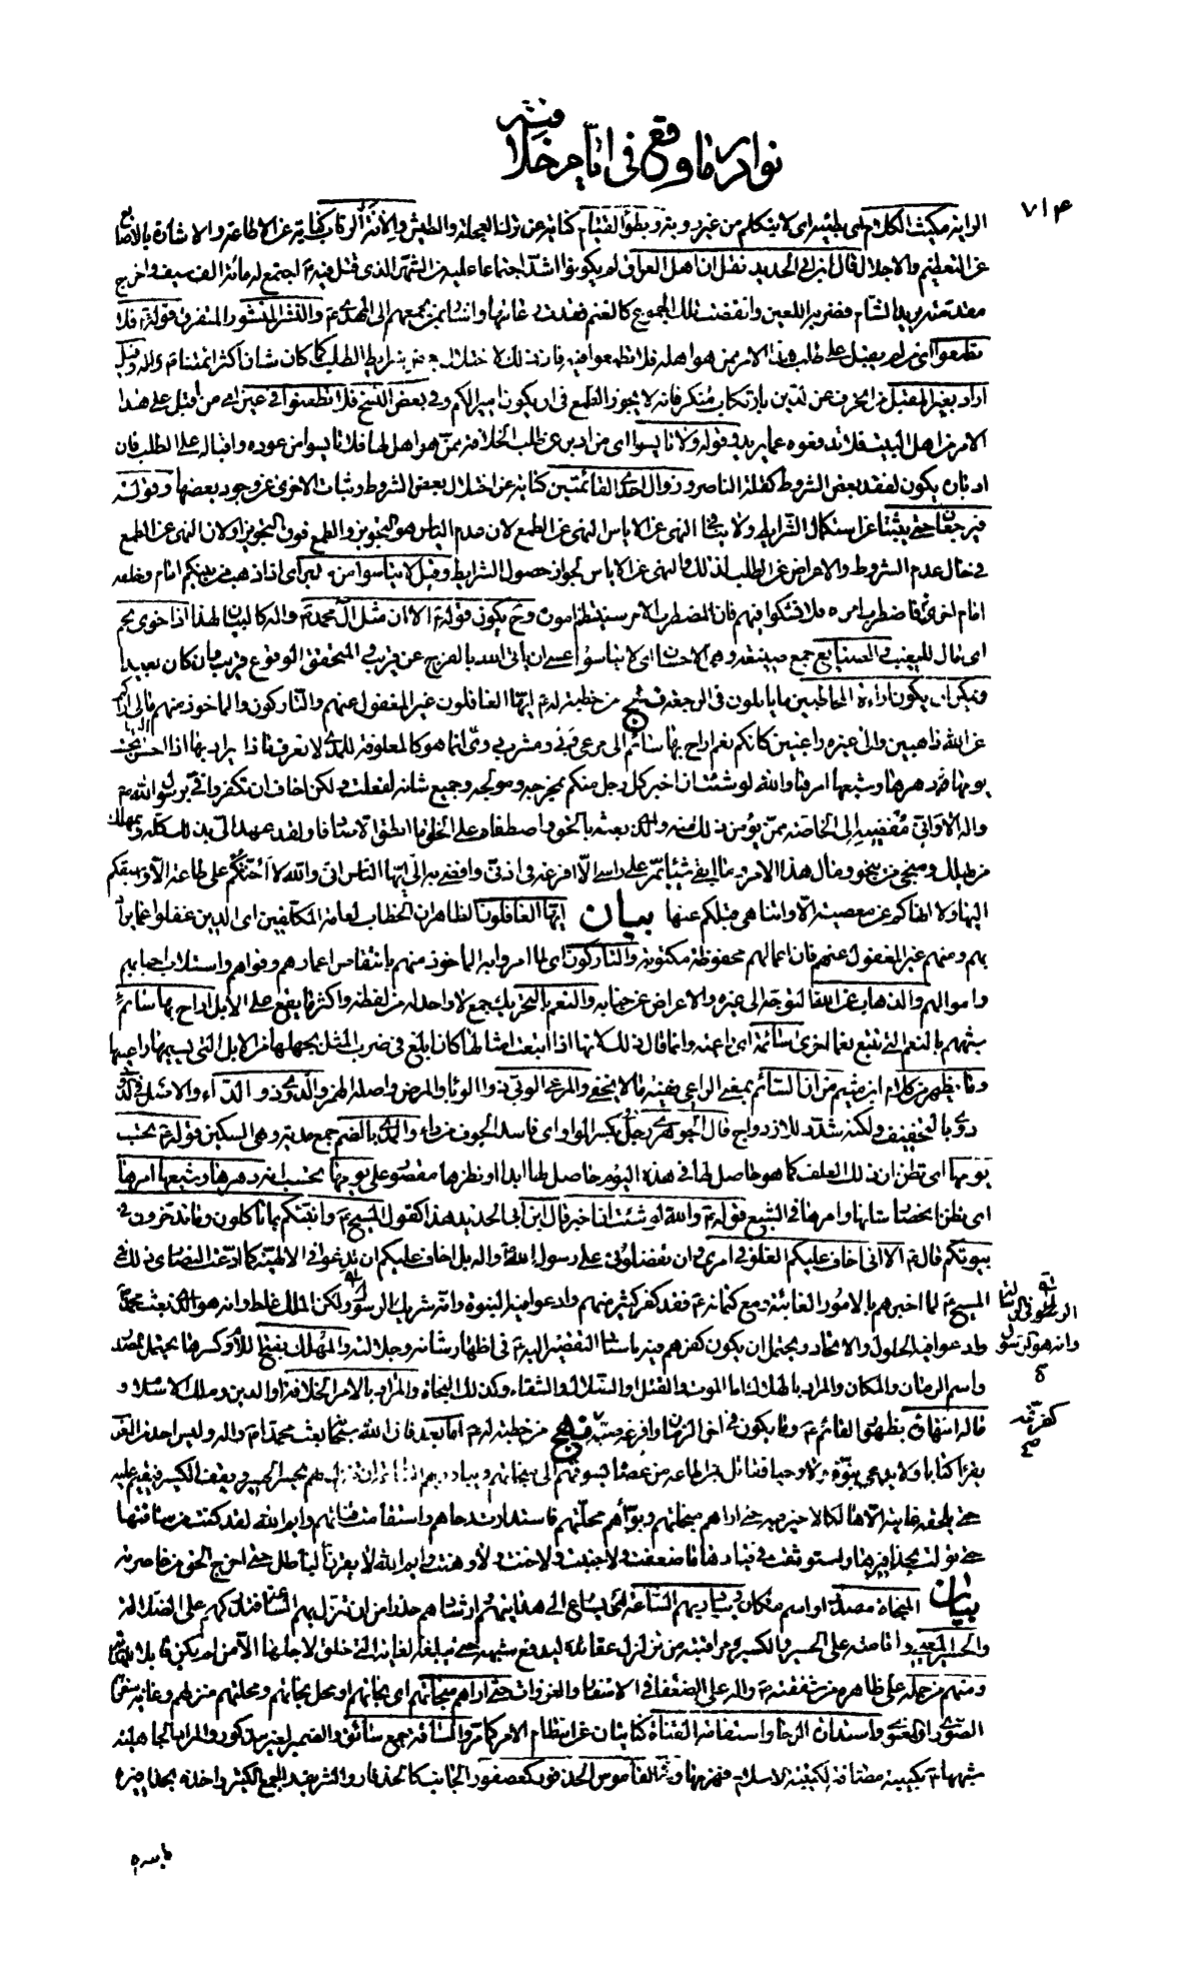 نوادر ما وقع في أيام خلافته
٧١٤
الراية مكيث الكلام أي بطيئه أي لا يتكلم من غير روية وبطؤ القيام كناية عن ترك العجلة والطيش وإلانة الرقاب كناية عن الإطاعة والإشارة بالأصابع
عن التعظيم والإجلال قال ابن أبي الحديد نقل ان أهل العراق لم يكونوا أشد اجتماعا عليه من الشهر الذي قتل فيه ع اجتمع له مائة ألف سيف وأخرج
مقدمته يريد الشام فضربه اللعين وانفضت تلك الجموع كالغنم فقدت راعيها وأشار بمن يجمعهم إلى المهدي ع والنشر المنشور المتفرق قوله ع فلا
تطمعوا أي من لم يقبل على طلب هذا الأمر ممن هو أهله فلا تطمعوا فيه فإن ذلك لاختلال بعض شرايط الطلب كما كان شان أكثر أئمتنا ع وقيل
أراد بغير المقبل من انحرف عن الدين بارتكاب منكر فإنه لا يجوز الطمع في ان يكون أميرا لكم وفي بعض النسخ فلا تطعنوا في عين أي من أقبل على هذا
الأمر من أهل البيت فلا تدفعوه عما يريد وقوله ولا تأيسوا أي من أدبر عن طلب الخلافة ممن هو أهل لها فلا تأيسوا من عوده وإقباله على الطلب فإن
إدباره يكون لفقد بعض الشروط كقلة الناصر وزوال إحدى القائمتين كناية عن اختلال بعض الشروط وثبات الأخرى عن وجود بعضها وقوله
فترجعا حتى يثبتا عن استكمال الشرايط ولا ينافي النهي عن الإياس النهي عن الطمع لأن عدم اليأس هو التجويز والطمع فوق التجويز أو لأن النهي عن الطمع
في حال عدم الشروط والإعراض عن الطلب لذلك والنهي عن الإياس لجواز حصول الشرايط وقيل لا تيأسوا من مدبر أي إذا ذهب من بينكم إمام وخلفه
إمام آخر فاضطرب أمره فلا تشكوا فيهم فإن المضطرب الأمر سينتظم أموره وح يكون قوله ع ألا إن مثل آل محمد ص وآله كالبيان لهذا إذا خوى نجم
أي مال للمغيب والصنايع جمع صنيعة وهي الإحسان أي لا تيأسوا عسى أن يأتي الله بالفرج عن قريب والمتحقق الوقوع قريب وإن كان بعيدا
ويمكن ان يكون إراءة المخاطبين ما يأملون في الرجعة نهج من خطبة له ع أيها الغافلون غير المغفول عنهم والتاركون والمأخوذ منهم مالي أراكم
عن الله ذاهبين وإلى غيره راغبين كأنكم نعم أراح بها سائم إلى مرعى وبي ومشرب دوي إنما هو كالمعلوفة للمدى لا تعرف ماذا يراد بها إذا أحسن إليها تحسب
يومها دهرها وشبعها أمرها والله لو شئت ان أخبر كل رجل منكم بمخرجه ومولجه وجميع شانه لفعلت ولكن أخاف ان تكفروا في برسول الله ص
وآله ألا وإني مفضيه إلى الخاصة ممن يؤمن ذلك منه والذي بعثه بالحق واصطفاه على الخلق ما أنطق إلا صادقا ولقد عهد إلي بذلك كله وبمهلك
من يهلك ومنجى من ينجو ومآل هذا الأمر وما أبقى شيئا يمر على رأسي إلا أفرغه في أذني وأفضى به إلي أيها الناس إني والله لا أحثكم على طاعة إلا وأسبقكم
إليها ولا أنهاكم عن معصية إلا وأتناهى قبلكم عنها بيان أيها الغافلون الظاهر ان الخطاب لعامة المكلفين أي الذين غفلوا عما يراد
بهم ومنهم غير المغفول عنهم فإن أعمالهم محفوظة مكتوبة والتاركون أي لما أمروا به المأخوذ منهم بانتقاص أعمارهم وقواهم واستلاب أحبابهم
وأموالهم والذهاب عن الله التوجه إلى غيره والإعراض عن جنابه والنعم بالتحريك جمع لا واحد له من لفظه وأكثر ما يقع على الإبل أراح بها سائم
شبههم بالنعم التي تتبع نعما أخرى سائمة أي راعية وإنما قال ذلك لأنها إذا اتبعت أمثالها كان أبلغ في ضرب المثل بجهلها من الإبل التي يسيمها راعيها
وما يظهر من كلام ابن ميثم من ان السائم بمعنى الراعي ففيه ما لا يخفى والمرعى الوبي ذو الوباء والمرض وأصله الهمز والدوي ذو الداء والأصل في الدوي
دو بالتخفيف ولكنه شدد للازدواج قال الجوهري رجل دو بكسر الواو أي فاسد الجوف من داء والمدى بالضم جمع مدية وهي السكين قوله ع تحسب
يومها أي تظن ان ذلك العلف كما هو حاصل لها في هذا اليوم حاصل لها أبدا أو نظرها مقصور على يومها تحسب انه دهرها وشبعها أمرها
أي تظن انحصار شانها وأمرها في الشبع قوله ع والله لو شئت ان أخبر قال ابن أبي الحديد هذا كقول المسيح ع وأنبئكم بما تأكلون وما تدخرون في
بيوتكم قال ع إلا اني أخاف عليكم الغلو في أمري وان تفضلوني على رسول الله ص وآله بل أخاف عليكم ان تدعوا في الإلهية كما ادعت النصارى ذلك في
المسيح ع لما أخبرهم بالأمور الغائبة ومع كتمانه ع فقد كفر كثير منهم وادعوا فيه النبوة وانه شريك الرسول ولكن الملك غلط وانه هو الذي بعث محمدا
وادعوا فيه الحلول والاتحاد ويحتمل ان يكون كفرهم فيه بإسناد التقصير إليه ع في إظهار شانه وجلالته والمهلك بفتح اللام وكسرها يحتمل المصدر
واسم الزمان والمكان والمراد بالهلاك إما الموت والقتل أو الضلال والشقاء وكذلك النجاة والمراد بالأمر الخلافة أو الدين وملك الإسلام و
مآله انتهاؤه بظهور القائم ع وما يكون في آخر الزمان وأفرغه صبه نهج من خطبة له ع أما بعد فإن الله سبحانه بعث محمدا ص وآله وليس أحد من العرب
يقرأ كتابا ولا يدعي نبوة ولا وحيا فقاتل بمن أطاعه من عصاه يسوقهم إلى منجاتهم ويبادر بهم الساعة أن تنزل بهم يحسر الحسير ويقف الكسير فيقيم عليه
حتى يلحقه غايته إلا هالكا لا خير فيه حتى أراهم منجاتهم وبوأهم محلتهم فاستدارت رحاهم واستقامت قناتهم وايم الله لقد كنت من ساقتها
حتى تولت بحذافيرها واستوثقت في قيادها ما ضعفت ولا جبنت ولا خنت ولا وهنت وايم الله لأبقرن الباطل حتى أخرج الحق من خاصرته
بيان المنجاة مصدر أو اسم مكان ويبادر بهم الساعة أي يسارع إلى هدايتهم وإرشادهم حذرا من ان تنزل بهم الساعة فتدركهم على الضلالة
والحسير المعيى وإقامته على الحسير والكسير مراقبته من تزلزل عقائده ليدفع شبهه حتى يبلغه الغاية التي خلق لأجلها إلا من لم يكن قابلا للهداية
ومنهم من حمله على ظاهره من شفقته ص وآله على الضعفاء في الأسفار والغزوات حتى أراهم منجاتهم أي نجاتهم أو محل نجاتهم ومحلتهم منزلهم وغاية سفرهم
الصوري أو المعنوي واستدارة الرحا واستقامة القناة كنايتان عن انتظام الأمر كما مر والساقة جمع سائق والضمير لغير مذكور والمراد الجاهلية
شبهها ع بكتيبة مصادفة لكتيبة الإسلام فهزمها وفي القاموس الحذفور كعصفور الجانب كالحذفار والشريف والجمع الكثير وأخذه بحذافيره
بأسره